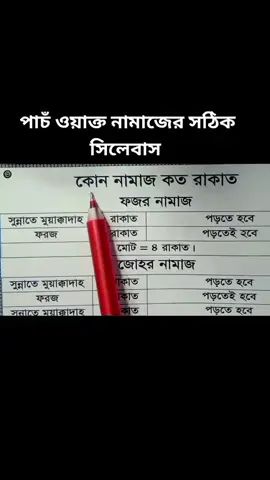 পাচঁ ওয়াক্ত নামাজের সঠিক
সিলেবাস
কোন নামাজ কত রাকাত
ফজর নামাজ
সুন্নাতে মুয়াক্কাদাহ রাকাত পড়তে হবে
ফরজ রাকাত পড়তেই হবে
মোট = ৪ রাকাত।
জোহর নামাজ
সুন্নাতে মুয়াক্কাদাহ রাকাত পড়তে হবে
ফরজ রাকাত পড়তেই হবে
সুন্নাতে মুয়াক্কাদাহ রাকাত পড়তে হবে